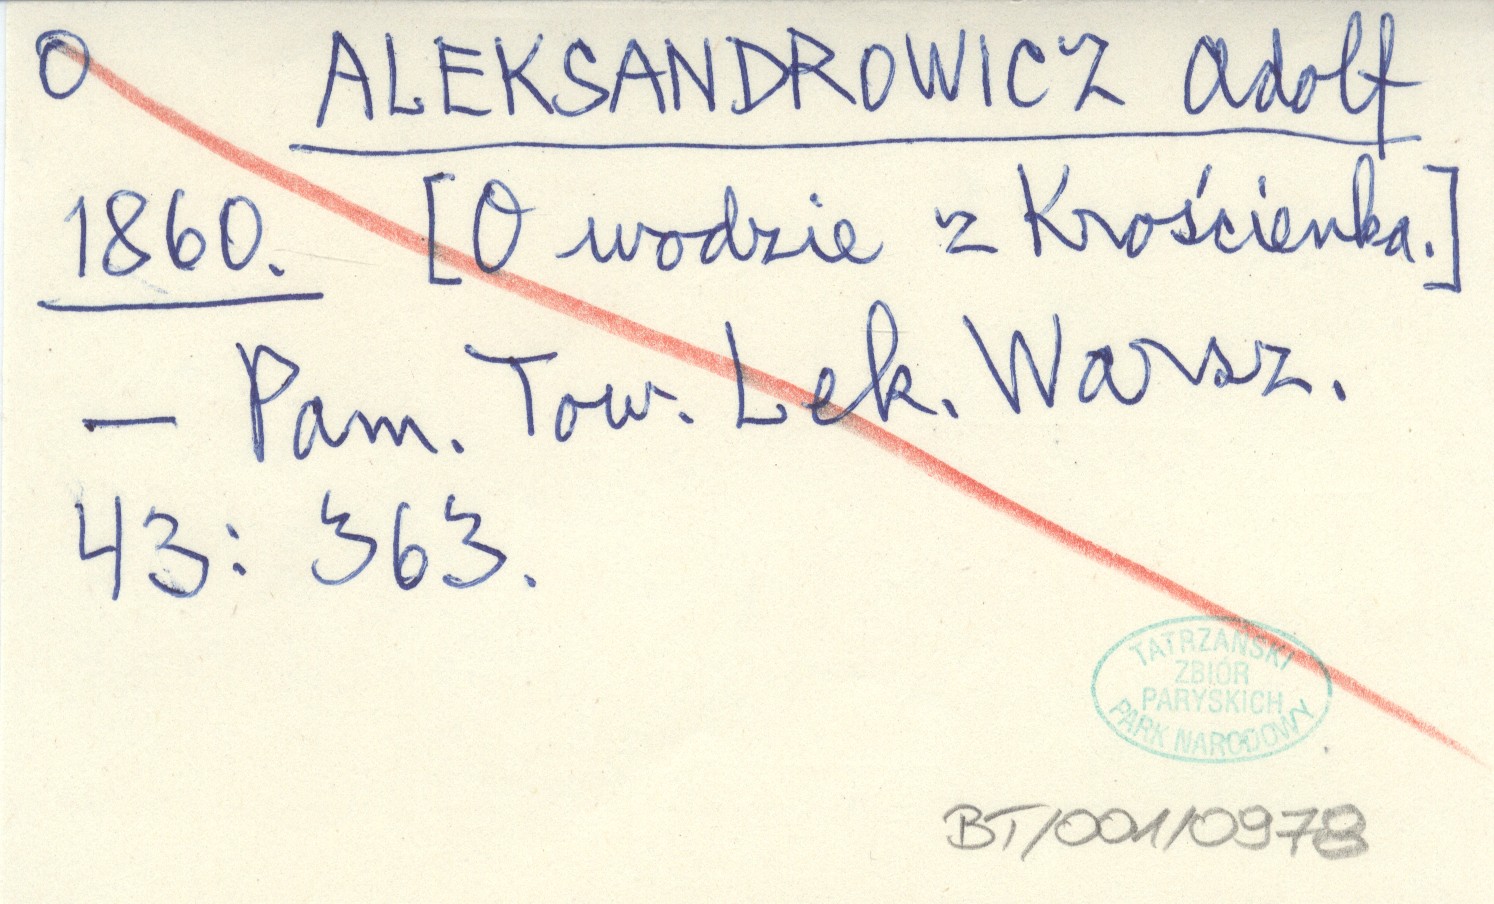 O ALEKSANDROWICZ Adolf
1860. [O wodzie z Krościenka.]
— Pam. Tow. Lek. Warsz.
43: 363.
TATRZAŃSKI
ZBIÓR
PARYSKICH
PARK NARODOWY
BT/001/0978